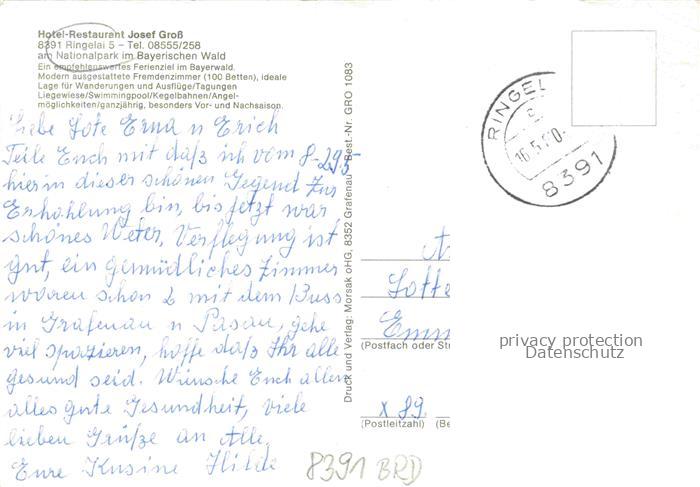 Hotel-Restaurant Josef Groß
8391 Ringelai 5 – Tel. 08555/258
am Nationalpark im Bayerischen Wald
Ein empfehlenswertes Ferienziel im Bayerwald.
Modern ausgestattete Fremdenzimmer (100 Betten), ideale
Lage für Wanderungen und Ausflüge/Tagungen
Liegewiese/Swimmingpool/Kegelbahnen/Angel-
möglichkeiten/ganzjährig, besonders Vor- und Nachsaison.
Liebe Lote Erna u Erich
Teile Euch mit daß ich vom 8-295
hier in dieser schönen Gegend zur
Erhohlung bin, bis jetzt war
schönes Weter, Verflegung ist
gut, ein gemüdliches Zimmer
waren schon 2 mit dem Buss
in Grafenau u Pasau, gehe
viel spazieren, hoffe daß Ihr alle
gesund seid. Wünsche Euch allen
alles gute Gesundheit, viele
lieben Grüße an Alle
Eure Kusine Hilde
8391 BRD
Druck und Verlag: Morsak oHG, 8352 Grafenau · Best.-Nr. GRO 1083
RINGEL
16.5.90
8391
Lotte
Emm
(Postfach oder Str
x 89
(Postleitzahl) (Be
privacy protection
Datenschutz